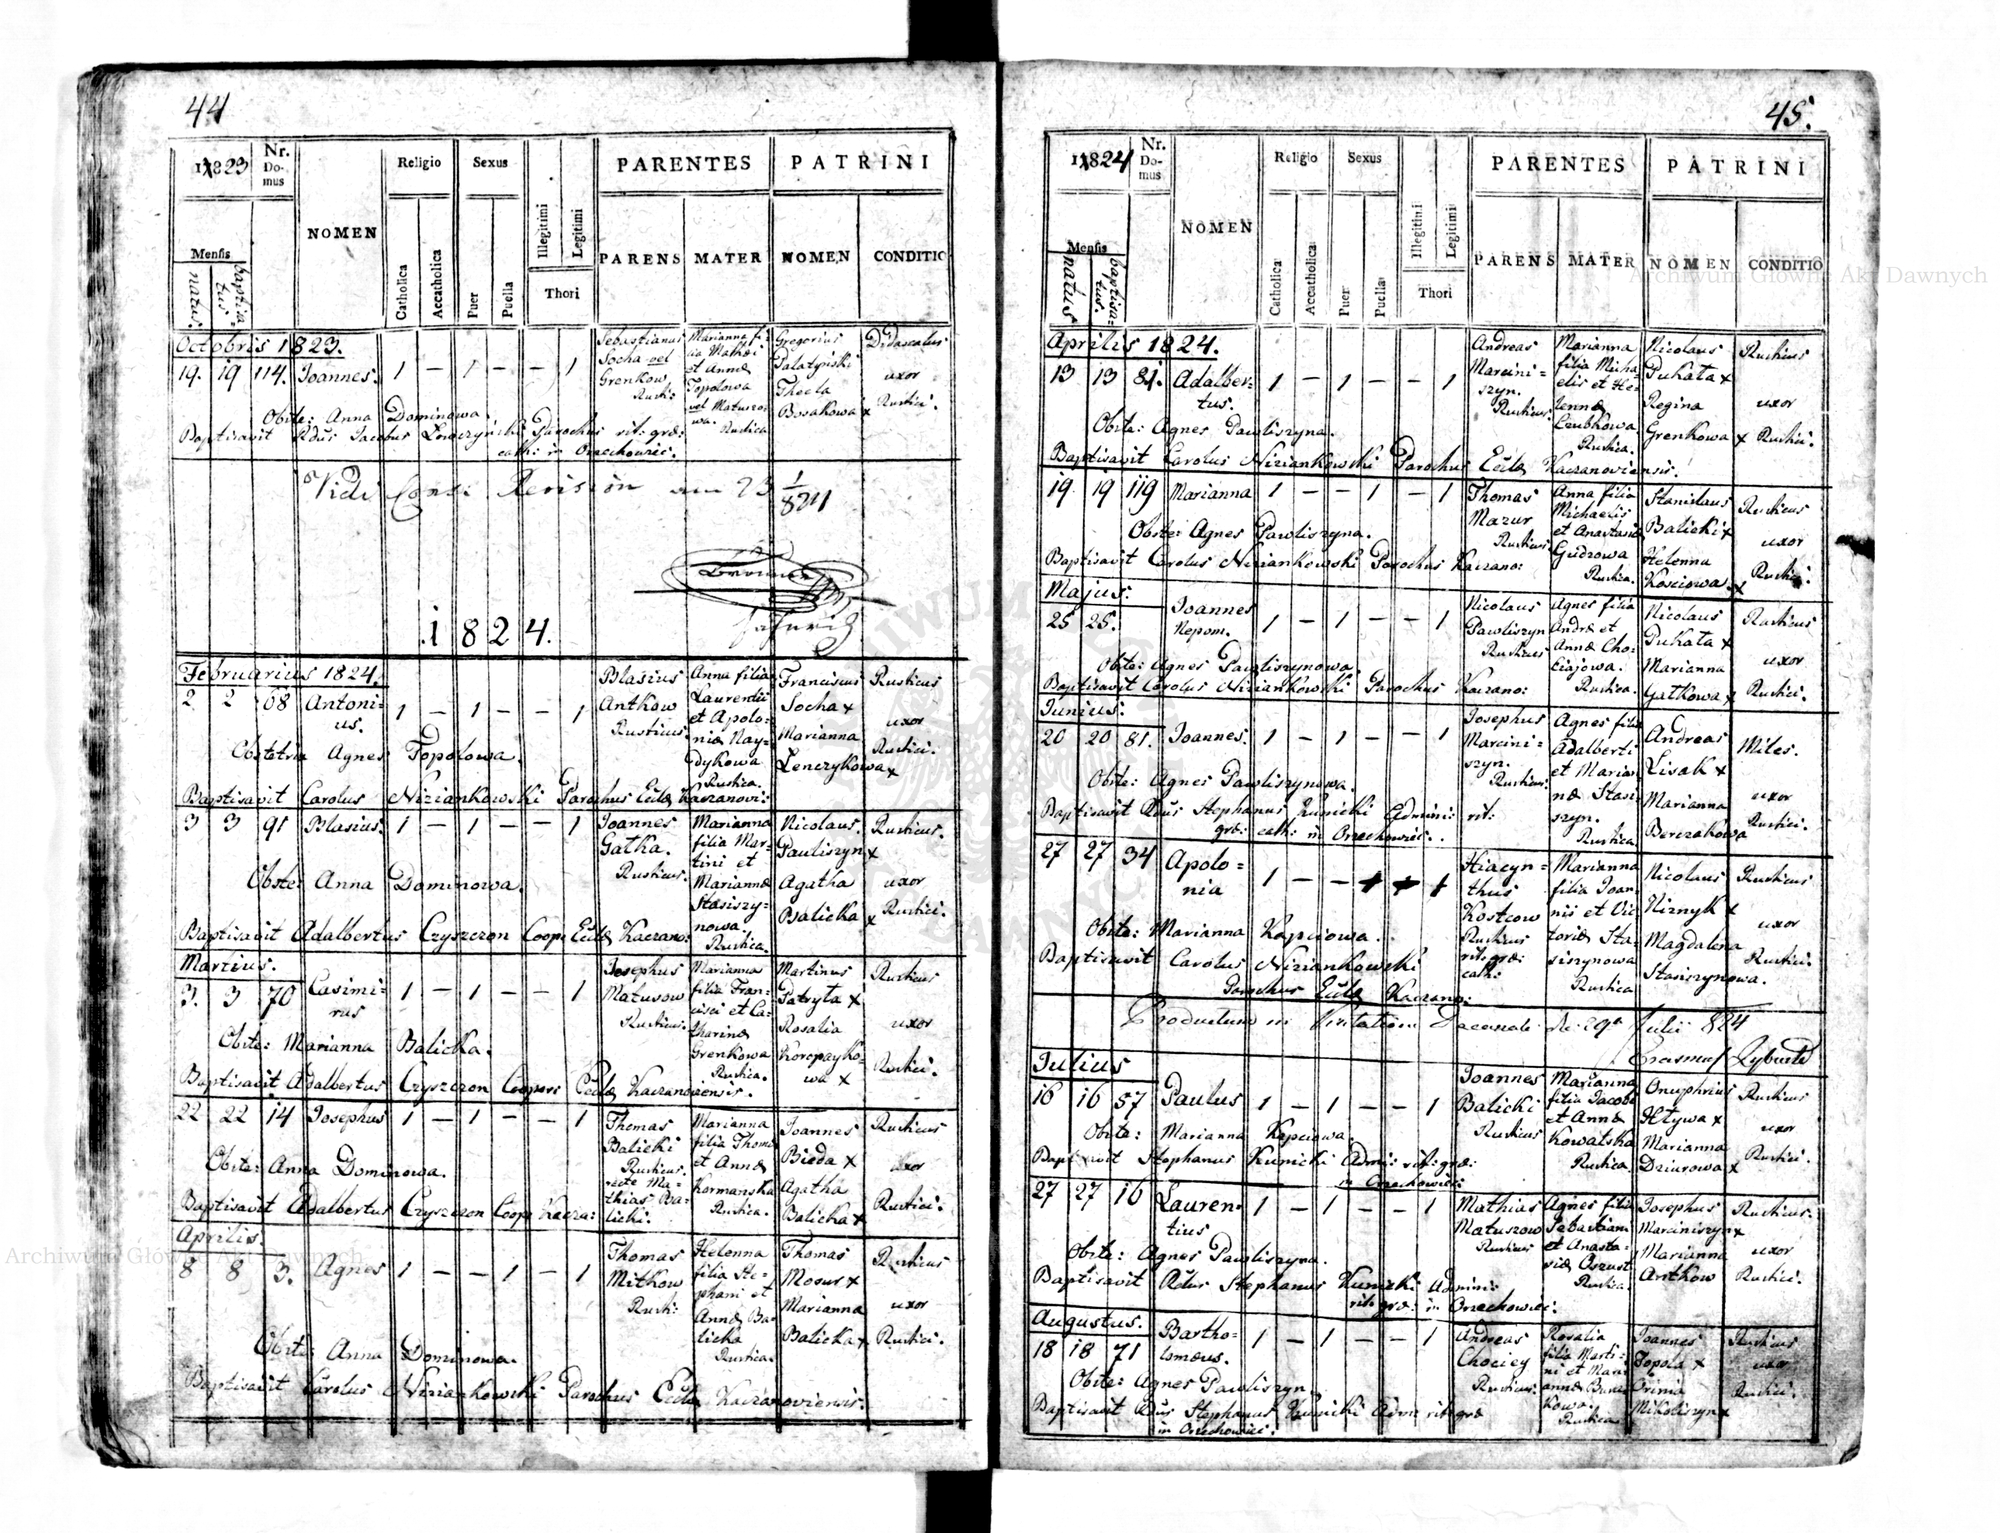 44
1823
Nr. Domus
NOMEN
Religio
Sexus
PARENTES
PATRINI
Mensis
natus.
baptisatus.
Catholica
Accatholica
Puer
Puella
Illegitimi
Legitimi
Thori
PARENS
MATER
NOMEN
CONDITIO
Octobris 1823.
19. 19 114. Joannes. 1 – 1 – – 1
Sebastianus
Socha vel
Grenkow
Rusti:
Marianna fi-
lia Mathei
et Annæ
Topolowa
vel Matuszo-
wa.
Rustica
Gregorius
Thecla
Bosakowa x
Didascalus
uxor
Rustici.
Obste: Anna Dominowa.
Baptisavit Rdus Jacobus Parochus rit: græ:
cath: in Orzechowiec.
Vidi Revision am 23 1/824
1824.
Februarius 1824.
2 2 68 Antoni-
us. 1 – 1 – – 1
Blasius
Antkow
Rusticus.
Anna filia
Laurentii
et Apolo-
niæ Nay-
dykowa
Rustica.
Franciscus
Socha x
Marianna
Lenczykowa x
Rusticus
uxor
Rustici.
Obstetrix Agnes Topolowa.
Baptisavit Carolus Niziankowski Parochus Eccłæ Kaczanovi:
3 3 91 Blasius. 1 – 1 – – 1
Joannes
Gatka.
Rusticus.
Marianna
filia Mar-
tini et
Mariannæ
Stasiszy-
nowa.
Rustica.
Nicolaus.
Pauliszyn x
Agatha
Balicka x
Rusticus.
uxor
Rustici.
Obste: Anna Dominowa.
Baptisavit Adalbertus Czyszczon Coope Eccłæ Kaczano:
Martius.
3. 3 70 Casimi-
rus 1 – 1 – – 1
Josephus
Matusow
Rusticus.
Marianna
filia Fran-
cisci et Ca-
tharinæ
Grenkowa
Rustica.
Martinus
Patryta x
Rosalia
Koropayko-
wa x
Rusticus
uxor
Rustici.
Obste: Marianna Balicka.
Baptisavit Adalbertus Czyszczon Coopers Eccłæ Kaczanoviensis.
22 22 14 Josephus 1 – 1 – – 1
Thomas
Balicki
Rusticus.
recte Ma-
thias Ba-
licki.
Marianna
filia Thomæ
et Annæ
Kormanska
Rustica.
Joannes
Bieda x
Agatha
Balicka x
Rusticus
uxor
Rustici.
Obste: Anna Dominowa.
Baptisavit Adalbertus Czyszczon Coope Kacza:
Aprilis.
8 8 3. Agnes 1 – – 1 – 1
Thomas
Mitkow
Rusti:
Helenna
filia Ste-
phani et
Annæ Ba-
licka
Rustica.
Thomas
Mosur x
Marianna
Balicka x
Rusticus
uxor
Rustici.
Obste: Anna Dominowa.
Baptisavit Carolus Niziankowski Parochus Eccłæ Kaczanoviensis.
45.
1824
Nr. Domus
NOMEN
Religio
Sexus
PARENTES
PATRINI
Mensis
natus
baptisatus.
Catholica
Accatholica
Puer
Puella
Illegitimi
Legitimi
Thori
PARENS
MATER
NOMEN
CONDITIO
Aprilis 1824.
13 13 81. Adalber-
tus. 1 – 1 – – 1
Andreas
Marcini-
szyn.
Rusticus.
Marianna
filia Micha-
elis et He-
lennæ
Czubkowa
Rustica.
Nicolaus
Pukata x
Regina
Grenkowa x
Rusticus
uxor
Rustici.
Obste: Agnes Pawliszyna.
Baptisavit Carolus Niziankowski Parochus Eccłæ Kaczanoviensis.
19 19 119 Marianna 1 – – 1 – 1
Thomas
Mazur
Rusticus.
Anna filia
Michaelis
et Anastasiæ
Gudzowa
Rustica.
Stanislaus
Balicki x
Helenna
Kosciowa x
Rusticus
uxor
Rustici.
Obste: Agnes Pawliszyna.
Baptisavit Carolus Niziankowski Parochus Kaczano:
Majus:
25 25. Joannes
Nepom. 1 – 1 – – 1
Nicolaus
Pawliszyn
Rusticus
Agnes filia
Andræ et
Annæ Cho-
ciejowa.
Rustica.
Nicolaus
Pukata x
Marianna
Gatkowa x
Rusticus
uxor
Rustici.
Obste: Agnes Pawliszynowa.
Baptisavit Carolus Niziankowski Parochus Kaczano:
Junius:
20 20 81. Joannes. 1 – 1 – – 1
Josephus
Marcini-
szyn.
Rusticus.
Agnes filia
Adalberti
et Marian-
næ Stasi-
szyn.
Rustica.
Andreas
Lisak x
Marianna
Berezakowa
Miles.
uxor
Rustici.
Obste: Agnes Pawliszynowa.
Baptisavit Rdus Stephanus Kunicki Admini: rit:
græ: cath: in Orzechowiec.
27 27 34 Apolo-
nia 1 – – 1 – 1
Hiacyn-
thus
Kostcow
Rusticus
rit: græ:
cath:
Marianna
filia Joan-
nis et Vic-
toriæ Sta-
siszynowa
Rustica
Nicolaus
Niznyk x
Magdalena
Stasiszynowa.
Rusticus
uxor
Rustici.
Obste: Marianna Kapciowa.
Baptisavit Carolus Niziankowski
Parochus Eccłæ Kaczano:
Productum in Visitatione Decanali die 29a Julii 824
Julius
16 16 57 Paulus 1 – 1 – – 1
Joannes
Balicki
Rusticus
Marianna
filia Jacobi
et Annæ
Kowalska
Rustica.
Onuphrius
Hływa x
Marianna
Dziurowa x
Rusticus
uxor
Rustici.
Obste: Marianna Kapciowa.
Baptisavit Stephanus Kunicki Admi: rit: græ:
in Orzechowiec:
27 27 16 Lauren-
tius 1 – 1 – – 1
Mathias
Matuszow
Rusticus
Agnes filia
Sebastiani
et Anasta-
siæ Oszust
Rustica.
Josephus
Marciniszyn x
Marianna
Antkow
Rusticus.
uxor
Rustici.
Obste: Agnes Pawliszyna.
Baptisavit Rdus Stephanus Kunicki Admini:
rit: græ: in Orzechowiec:
Augustus.
18 18 71 Bartho-
lomæus. 1 – 1 – – 1
Andreas
Chociey
Rusticus.
Rosalia
filia Marti-
ni et Mari-
annæ
Rustica.
Joannes
Topola x
Orinia
Mikoliszyn x
Rusticus
uxor
Rustici.
Obste: Agnes Pawliszyn.
Baptisavit Rdus Stephanus Kunicki Admi rit: græ
in Orzechowiec.
Archiwum Główne Akt Dawnych
Archiwum Główne Akt Dawnych